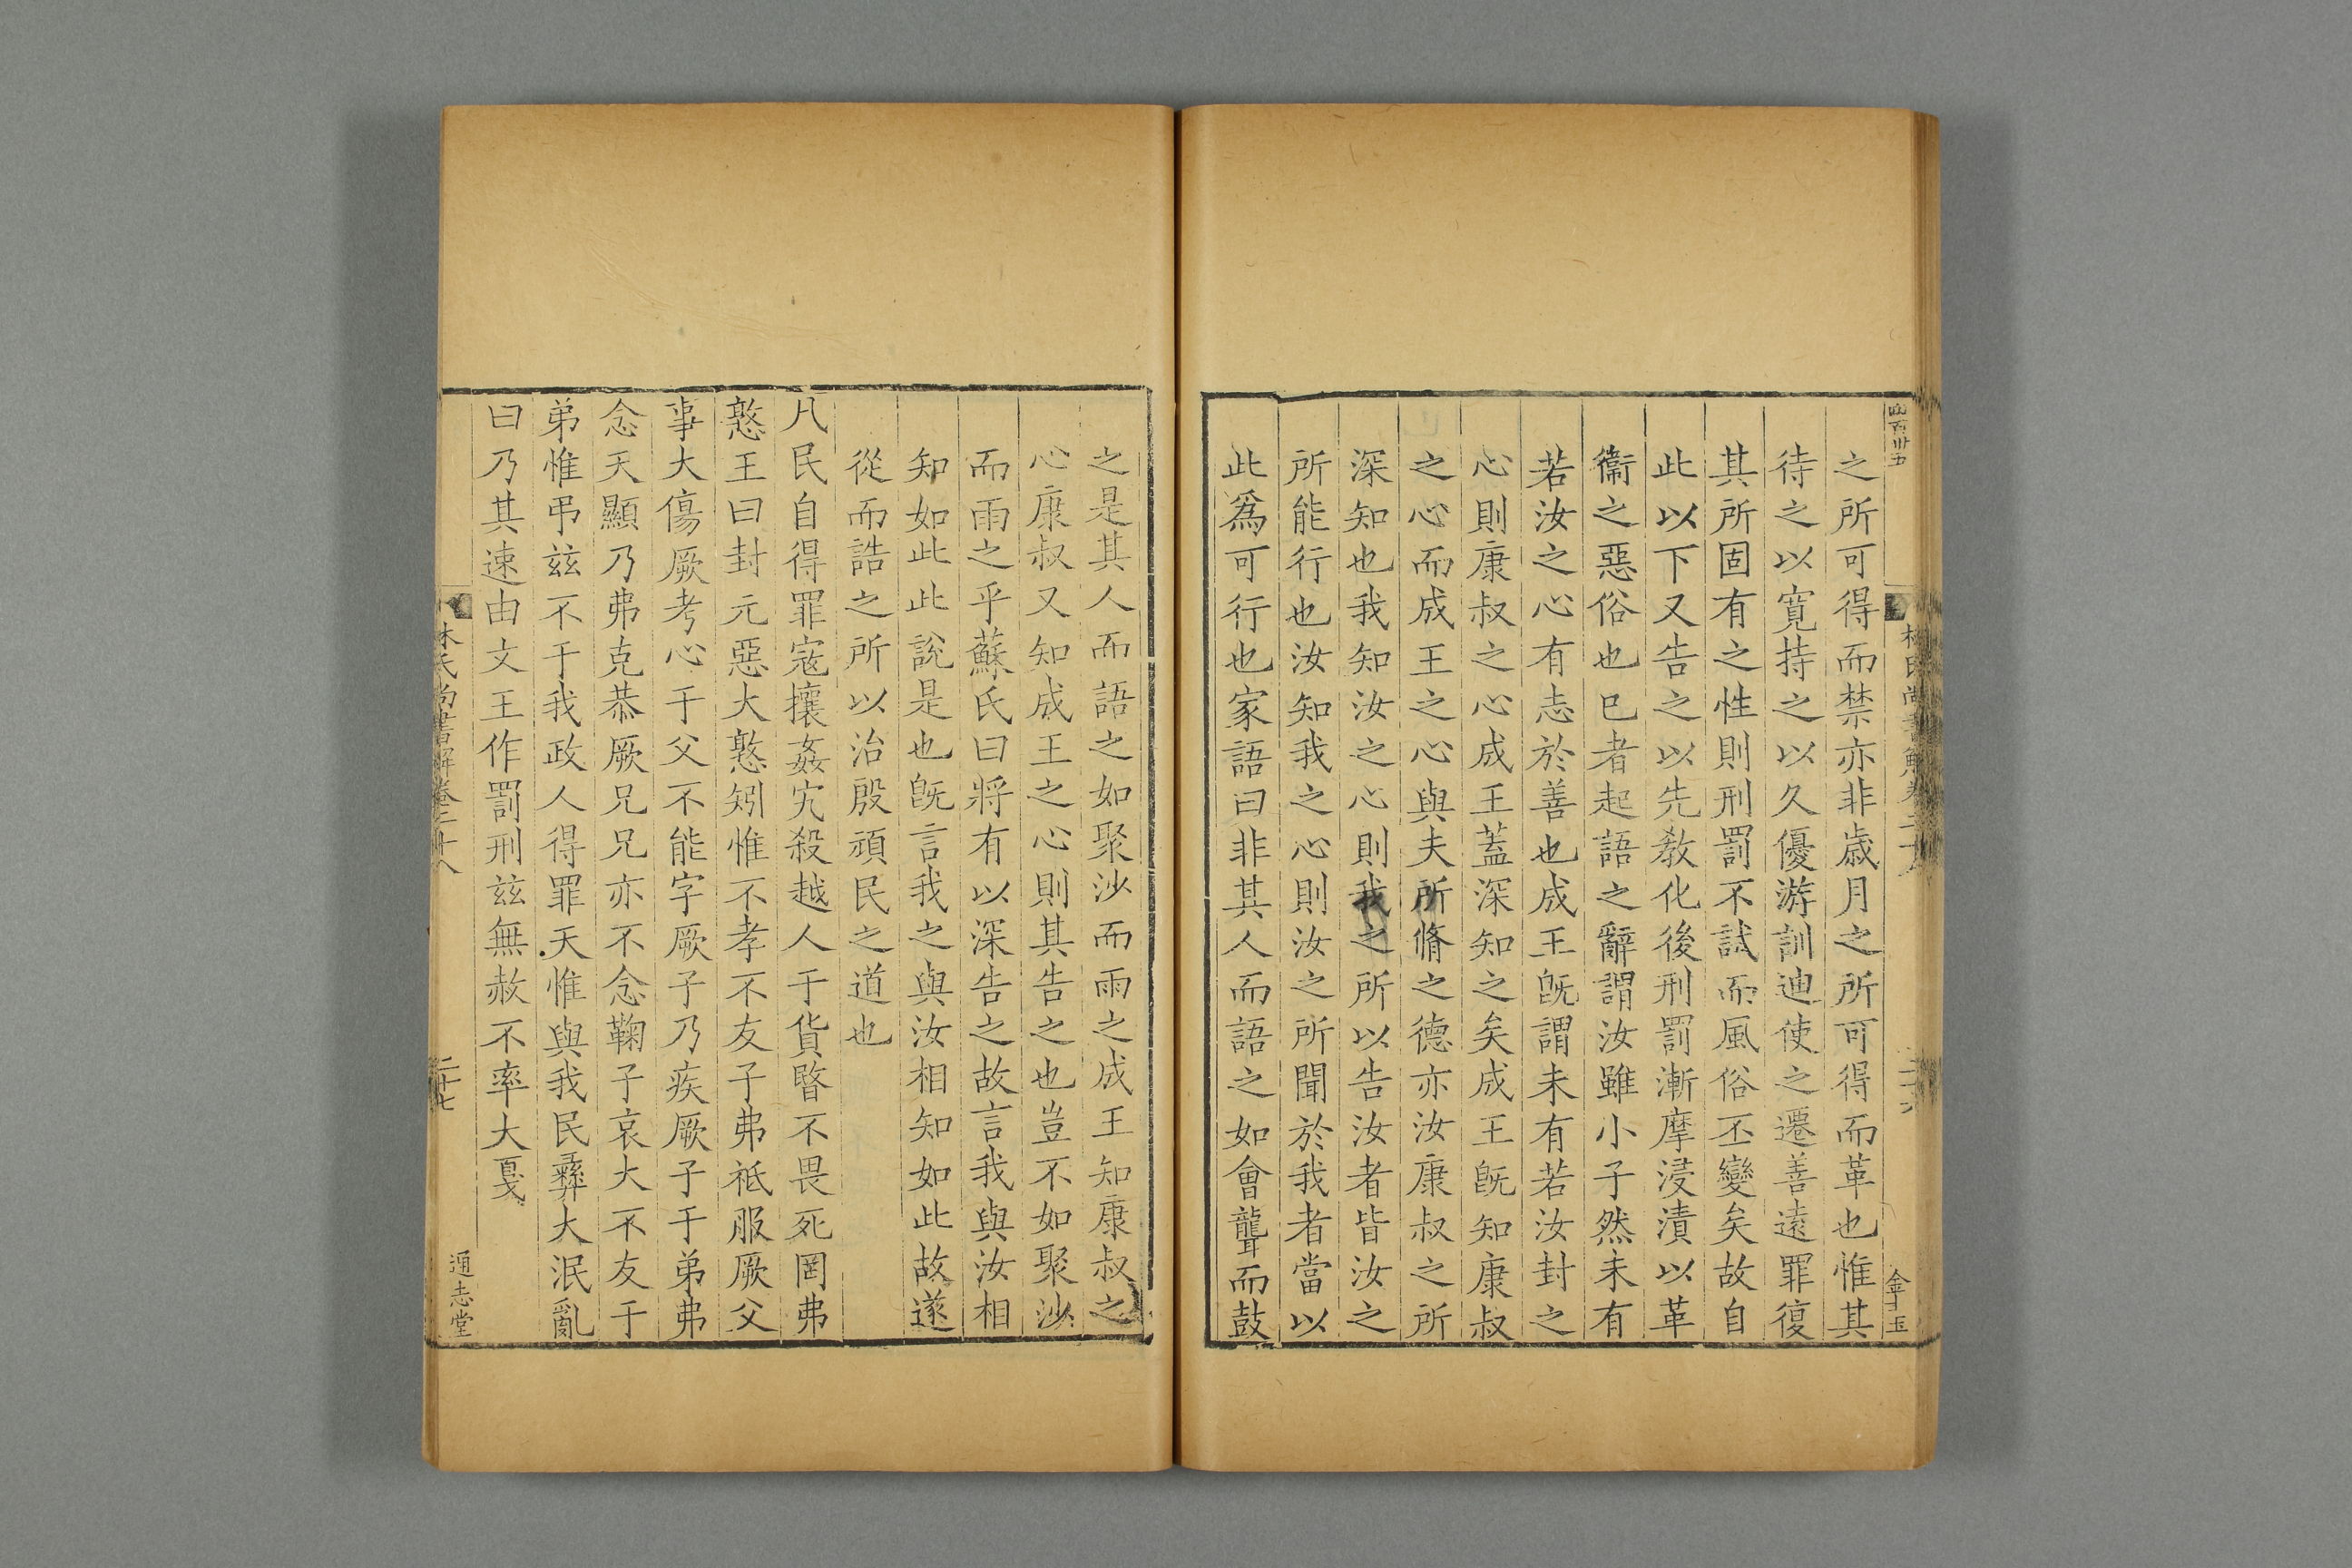 之所可得而禁亦非歳月之所可得而革也惟其
待之以寛持之以久優游訓迪使之遷善遠罪復
其所固有之性則刑罰不試而風俗丕變矣故自
此以下又告之以先教化後刑罰漸摩浸漬以革
衞之惡俗也已者起語之辭謂汝雖小子然未有
若汝之心有志於善也成王旣謂未有若汝封之
心則康叔之心成王蓋深知之矣成王旣知康叔
之心而成王之心與夫所脩之德亦汝康叔之所
深知也我知汝之心則我之所以告汝者皆汝之
所能行也汝知我之心則汝之所聞於我者當以
此爲可行也家語曰非其人而語之如會聾而鼓
之是其人而語之如聚沙而雨之成王知康叔之
心康叔又知成王之心則其告之也豈不如聚沙
而雨之乎蘇氏曰將有以深告之故言我與汝相
知如此此說是也旣言我之與汝相知如此故遂
從而誥之所以治殷頑民之道也
凡民自得罪寇攘姦宄殺越人于貨暋不畏死罔弗
憝王曰封元惡大憝矧惟不孝不友子弗祗服厥父
事大傷厥考心于父不能字厥子乃疾厥子于弟弗
念天顯乃弗克恭厥兄兄亦不念鞠子哀大不友于
弟惟弔兹不于我政人得罪天惟與我民彝大泯亂
曰乃其速由文王作罰刑兹無赦不率大戛
林氏尚書解卷二十八
二十七
通志堂